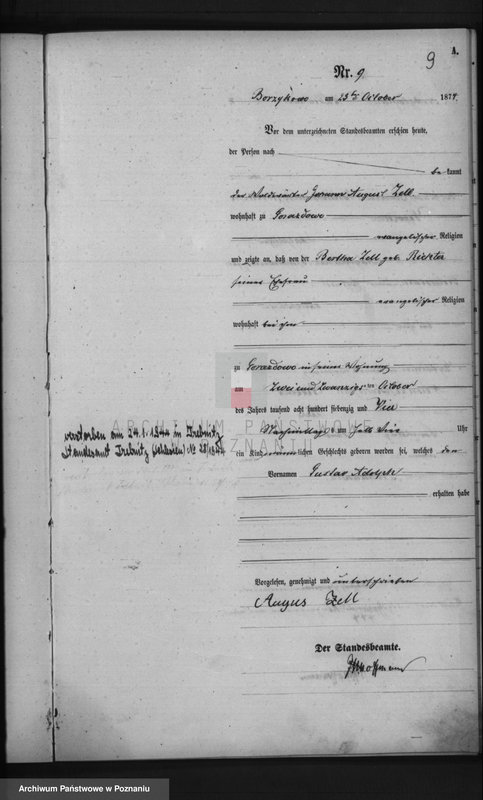 9 A.
Nr. 9
Borzykowo am 23ten October 1874.
Vor dem unterzeichneten Standesbeamten erschien heute,
der Person nach
be kannt
der Waldwärter August Zell.
wohnhaft zu
evangelischer Religion
und zeigte an, daß von der Bertha Zell geb. Richter
seiner Ehefrau
evangelischer Religion
wohnhaft bei ihm
zu in seiner Wohnung
am Zwei und Zwanzigsten October
des Jahres tausend acht hundert siebenzig und Vier
Nachmittags um halb Vier Uhr
ein Kind männlichen Geschlechts geboren worden sei, welches den
Vornamen Gustav Adolph
erhalten habe
Vorgelesen, genehmigt und unterschrieben
August Zell
Der Standesbeamte.
Hoffmann
verstorben am 24.1.1944 in Trebnitz
Standesamt Trebnitz (Schlesien) Nr
ARCHIWUM PAŃSTWOWE
W POZNANIU
Archiwum Państwowe w Poznaniu